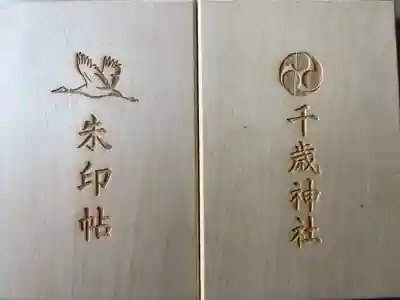 千歳神社
朱印帖